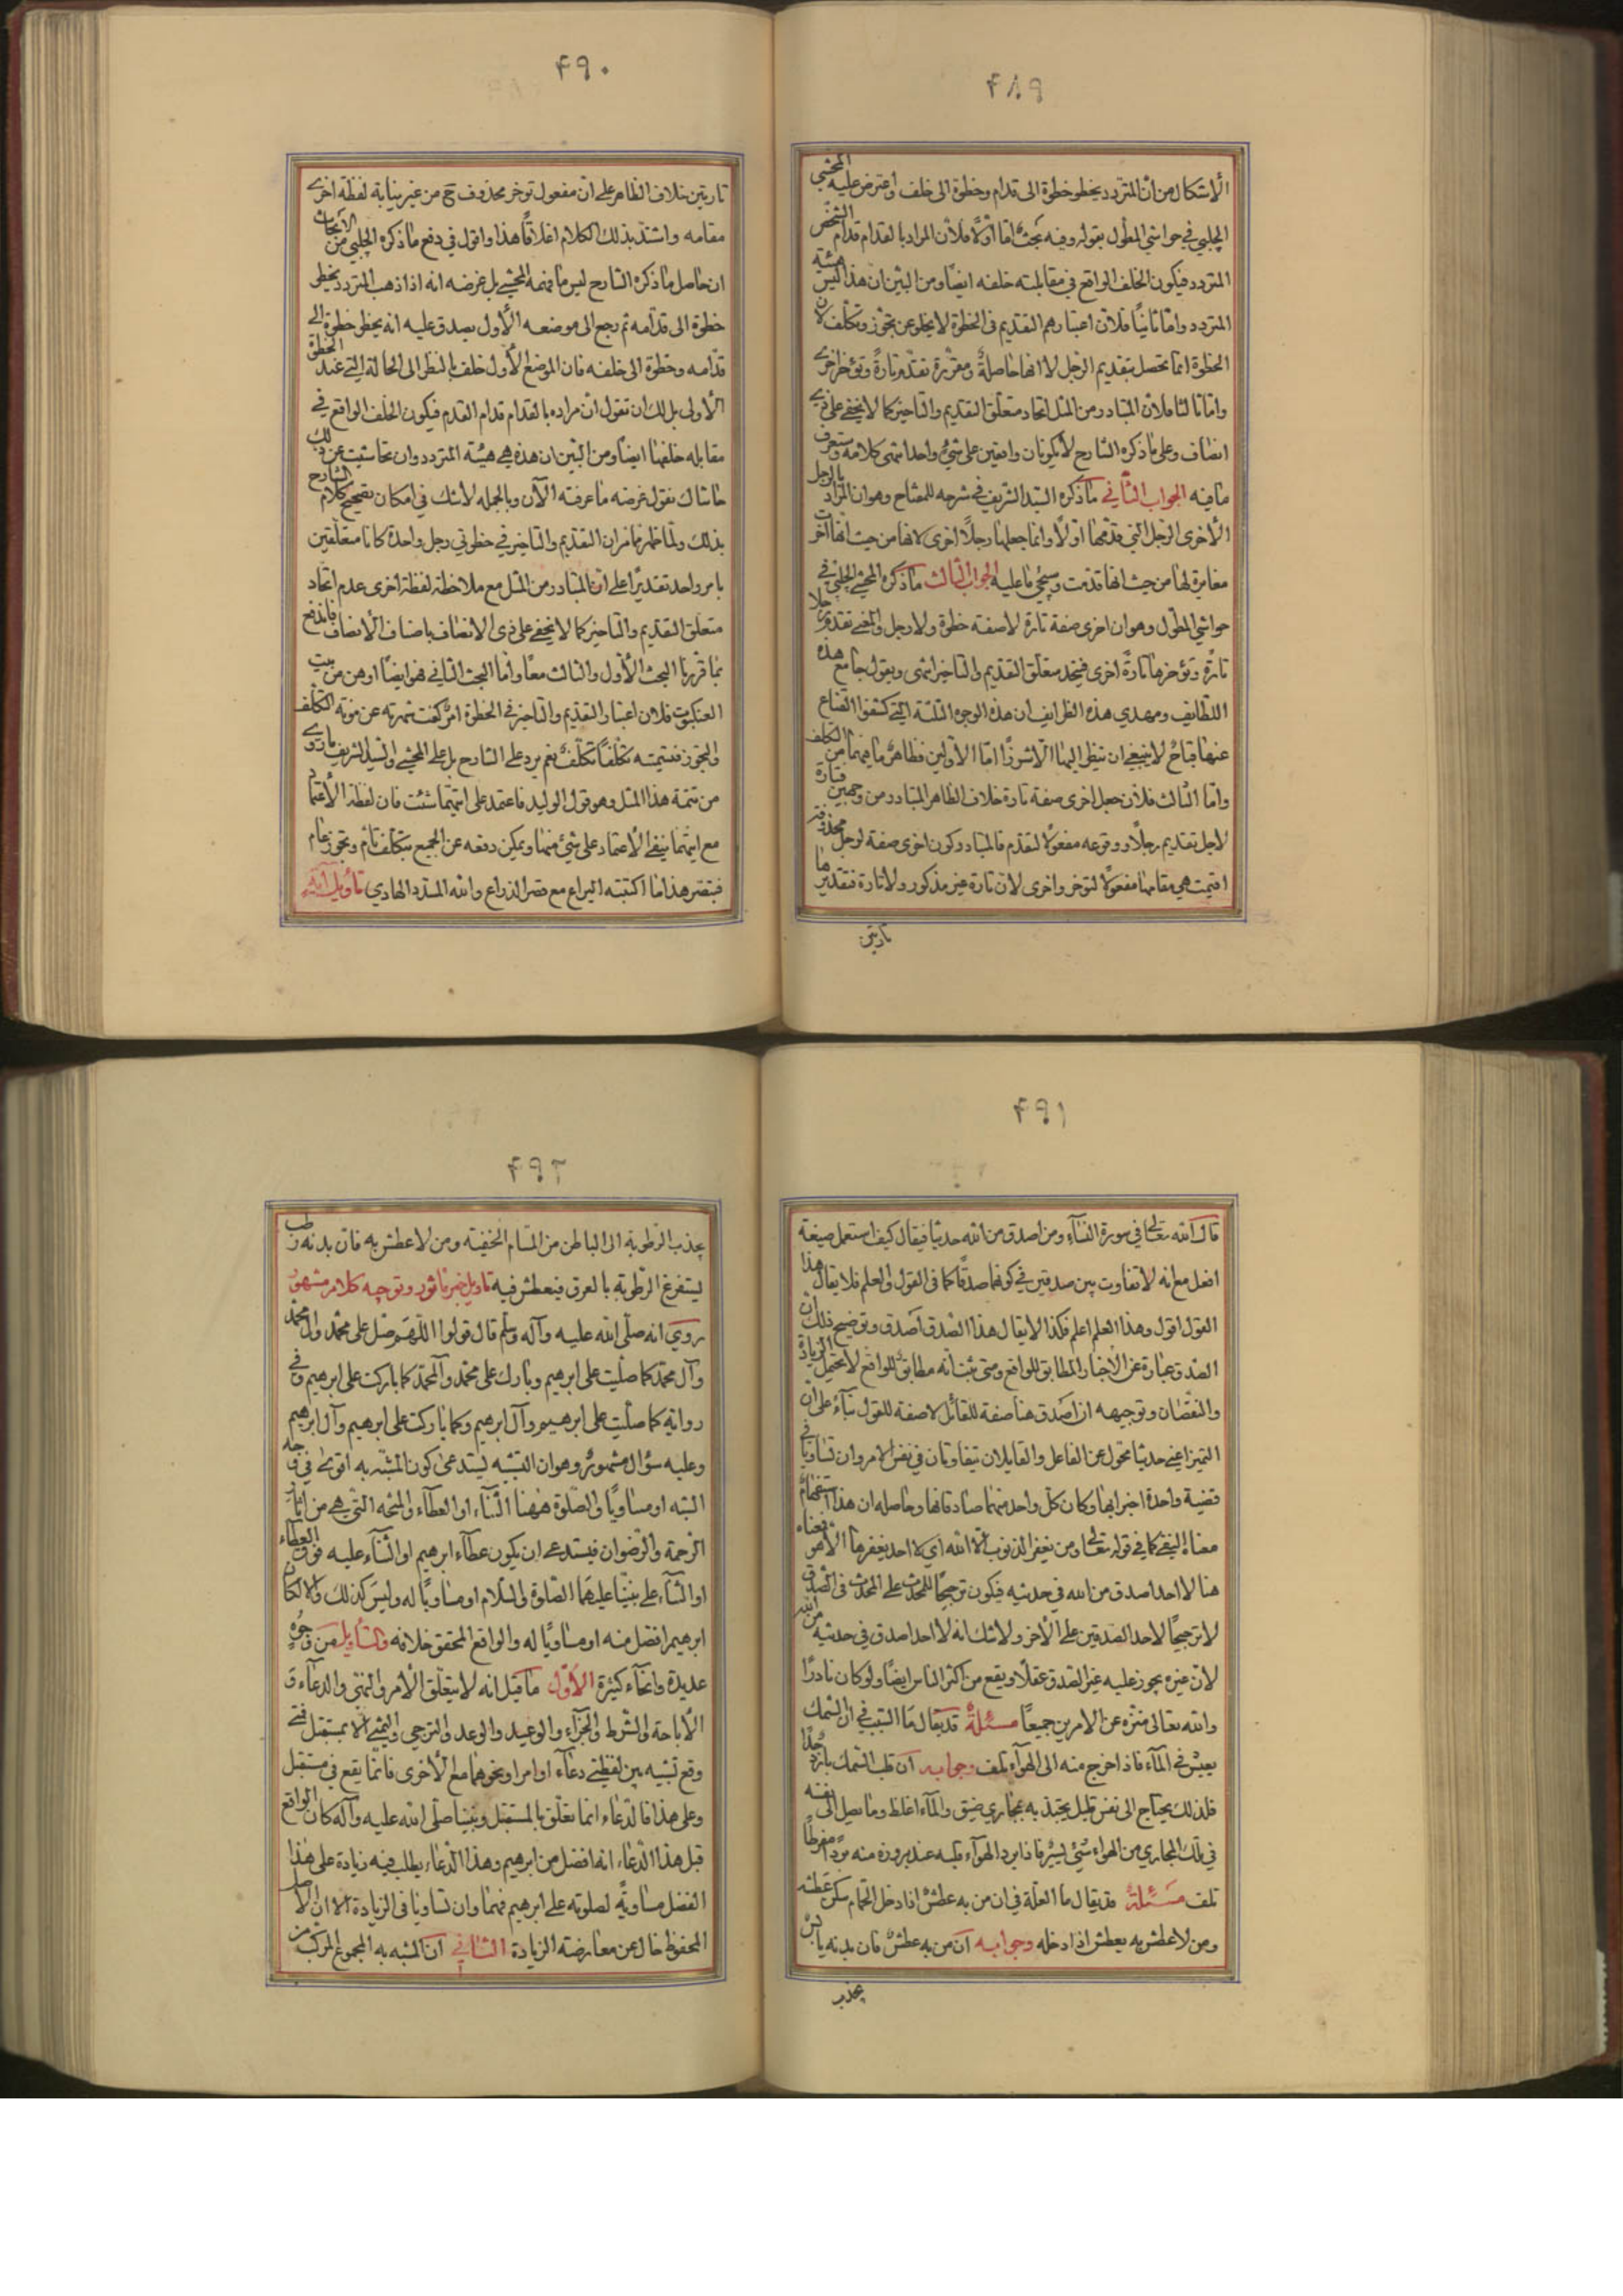 ۴۸۹
الأشكال من ان المتردد يخطو خطوة الى قدام وخطوة الى خلف واعترض عليه المحشي
الچلبي في حواشي المطول بقوله وفيه بحث اما اولا فلأن المراد بالقدام قدام الشخص
المتردد فيكون الخلف الواقع في مقابلته خلفه ايضا ومن البين ان هذا ليس هيئة
المتردد واما ثانيا فلأن اعتبارهم التقديم في الخطوة لا يخلو عن تجوز وتكلف لان
الخطوة انما تحصل بتقديم الرجل لا انها حاصلة ومقررة تقدم تارة وتؤخر اخرى
واما ثالثا فلان المتبادر من المثل اتحاد متعلق التقديم والتاخير كما لا يخفى على ذي
انصاف وعلى ما ذكره الشارح لا يكونان واقعين على شيء واحد انتهى كلامه وستعرف
ما فيه الجواب الثاني ما ذكره السيد الشريف في شرحه للمفتاح وهو ان المراد بالرجل
الأخرى الرجل التي قدمها اولا وانما جعلها رجلا اخرى لانها من حيث انها اخرت
مغايرة لها من حيث انها قدمت وسيجئ ما عليه الجواب الثالث ما ذكره المحشي الچلبي في
حواشي المطول وهو ان اخرى صفة تارة لا صفة خطوة ولا رجل والمعنى تقدم رجلا
تارة وتؤخرها تارة اخرى فيتحد متعلق التقديم والتاخير انتهى ويقول جامع هذه
اللطايف ومهدي هذه الظرايف ان هذه الوجوه الثلثة التي كشفوا القناع
عنها قباح لا ينبغي ان ينظر اليها الا شزرا اما الاولين فظاهر ما فيهما من التكلف
واما الثالث فلأن جعل اخرى صفة تارة خلاف الظاهر المتبادر من وجهين فتارة
لاجل تقديم رجلا ووقوعه مفعولا لتقدم فالمتبادر كون اخرى صفة لرجل محذوفة
اقيمت هي مقامها مفعولا لتوخر واخرى لان تارة غير مذكورة ولا تارة فتقديرها
تاريتن
۴۹۰
تاريتن خلاف الظاهر على ان مفعول توخر محذوف ح من غير نيابة لفظة اخرى
مقامه واشتد بذلك الكلام اغلاقا هذا واقول في دفع ما ذكره الچلبي من الابحاث
ان حاصل ما ذكره الشارح ليس ما فهمه المحشي بل غرضه انه اذا ذهب المتردد يخطو
خطوة الى قدامه ثم رجع الى موضعه الأول يصدق عليه انه يخطو خطوة الى
قدامه وخطوة الى خلفه فان الموضع الأول خلف بالنظر الى الحالة التي عند الخطوة
الأولى بل لك ان تقول ان مراده بالقدام قدام القدم فيكون الخلف الواقع في
مقابله خلفها ايضا ومن البين ان هذه هي هيئة المتردد وان تحاشيت عن ذلك
حاشاك نقول غرضه ما عرفته الآن وبالجملة لا شك في امكان تصحيح كلام الشارح
بذلك ولما ظهر مما مر ان التقديم والتاخير في خطوتي رجل واحدة كانا متعلقين
بامر واحد تقديرا على ان المتبادر من المثل مع ملاحظة لفظة اخرى عدم اتحاد
متعلق التقديم والتاخير كما لا يخفى على ذي الانصاف باضاف الأنصاف فاندفع
بما قررنا البحث الأول والثالث معا واما البحث الثاني فهو ايضا اوهن من بيت
العنكبوت فلان اعتبار التقديم والتاخير في الخطوة امر كفت شهرته عن مونة التكلف
والتجوز فتسميته تكلفا تكلف نعم يرد على الشارح بل على المحشي والسيد الشريف ما روي
من تتمة هذا المثل وهو قول الوليد فاعتمد على ايتهما شئت فان لفظة الأعتماد
مع ايتهما ينفي الأعتماد على شيئ منهما ويمكن دفعه عن الجميع بتكلف تام وتجوز عام
فبتصر هذا ما اكتبته اليراع مع قصر الذراع والله المسدد الهادي تأويل آية
۴۹۱
قال الله تعالى في سورة النساء ومن اصدق من الله حديثا فيقال كيف استعمل صيغة
افعل مع انه لا تفاوت بين صدقين في كونهما صدقا كما في القول والعلم فلا يقال هذا
القول اقول وهذا العلم اعلم فكذا لا يقال هذا الصدق اصدق وتوضيح ذلك ان
الصدق عبارة عن الأخبار المطابق للواقع ومتى ثبت انه مطابق للواقع لا يحتمل الزيادة
والنقصان وتوجيهه ان اصدق هنا صفة للقائل لا صفة للقول بناء على ان
التميز اعني حديثا محول عن الفاعل والقايلان يتفاوتان في نفس الامر وان تساويا في
قضية واحدة اخبرا بها وكان كل واحد منهما صادقا بها وحاصله ان هذا استفهام
معناه النفي كما في قوله تعالى ومن يغفر الذنوب الا الله اي لا احد يغفرها الا هو فمعناه
هنا لا احد اصدق من الله في حديثه فيكون ترجيحا للمحدث على المحدث في الصدق
لا ترجيحا لاحد الصدقين على الأخر ولا شك انه لا احد اصدق في حديثه من الله
لأن غيره يجوز عليه غير الصدق عقلا ويقع من اكثر الناس ايضا ولو كان نادرا
والله تعالى منزه عن الامرين جميعا مسئلة قد يقال ما السبب في ان السمك
يعيش في الماء فاذا خرج منه الى الهواء تلف وجوابه ان قلب السمك بارد جدا
فلذلك يحتاج الى نفس قليل يجتذبه بمجاري ضيق والماء اغلظ وما يصل الى نفسه
في تلك المجاري من الهواء شيئ يسير فاذا برد الهواء قلبه عند بروزه منه بردا مفرطا
تلف مسئلة قد يقال ما العلة في ان من به عطش اذا دخل الحمام سكن عطشه
ومن لا عطش به يعطش اذا دخله وجوابه ان من به عطش فان بدنه يابس
يجذب
۴۹۲
يجذب الرطوبة الى الباطن من المسام الخفية ومن لا عطش به فان بدنه رطب
يستفرغ الرطوبة بالعرق فيعطش فيه تاويل خبر ماثور وتوجيه كلام مشهور
روي انه صلى الله عليه وآله وسلم قال قولوا اللهم صل على محمد وال محمد
وآل محمد كما صليت على ابرهيم وبارك على محمد وآل محمد كما باركت على ابرهيم وفي
رواية كما صليت على ابرهيم وآل ابرهيم وكما باركت على ابرهيم وآل ابرهيم
وعليه سؤال مشهور وهو ان التشبيه يستدعى كون المشبه به اقوى في وجه
الشبه او مساويا والصلوة ههنا الثناء او العطاء والمنحه التي هي من اثار
الرحمة والرضوان فيستدعي ان يكون عطاء ابرهيم او الثناء عليه فوق العطاء
او الثناء على نبينا عليهما الصلوة والسلام او مساويا له وليس كذلك والا لكان
ابرهيم افضل منه او مساويا له والواقع المحقق خلافه والتأويل من وجوه
عديدة وانحاء كثيرة الأول ما قيل انه لا يتعلق الأمر والنهي والدعاء و
الأباحة والشرط والجزاء والوعيد والوعد والترجي والتمني الا بمستقبل فمتى
وقع تشبيه بين لفظتي دعاء او امر او نحوهما مع الأخرى فانما يقع في مستقبل
وعلى هذا فالدعاء انما تعلق بالمستقبل ونبينا صلى الله عليه وآله كان الواقع
قبل هذا الدعاء انه افضل من ابرهيم وهذا الدعاء يطلب فيه زيادة على هذا
الفضل مساوية لصلوته على ابرهيم فهما وان تساويا في الزيادة الا ان الأصل
المحفوظ خال عن معارضة الزيادة الثاني ان المشبه به المجموع المركب من